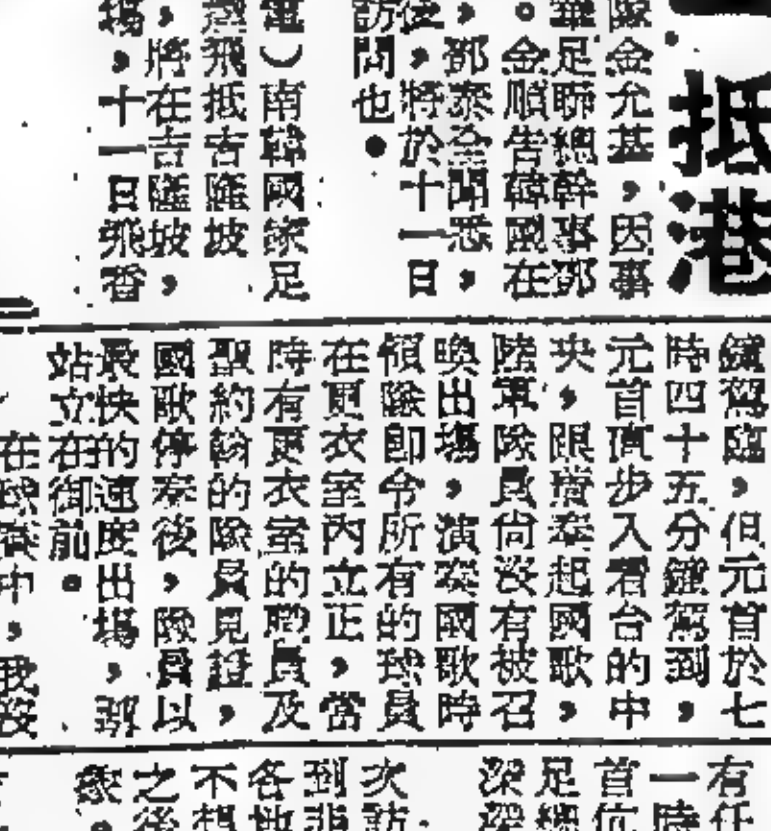 抵港
隊金允基，因事
華足聯總幹事鄧
。金順告韓國在
，鄧泰全聞悉，
後，將於十一日
訪問也●
電）南韓國家足
飛抵吉隆坡
，將在吉隆坡，
場，十一日飛香
鐘駕臨，但元首於七
時四十五分鐘駕到，
元首直步入看台的中
央，跟着奏起國歌，
陸軍隊員尚沒有被召
喚出場，演奏國歌時
領隊即令所有的球員
在更衣室內立正，當
時有更衣室的職員及
聖約翰的隊員見證，
國歌停奏後，隊員以
最快的速度出場，
站立在御前。
在球賽中，我沒
有任
一時
首位
足總
深深
次訪
到非
各地
不想
之後
家。